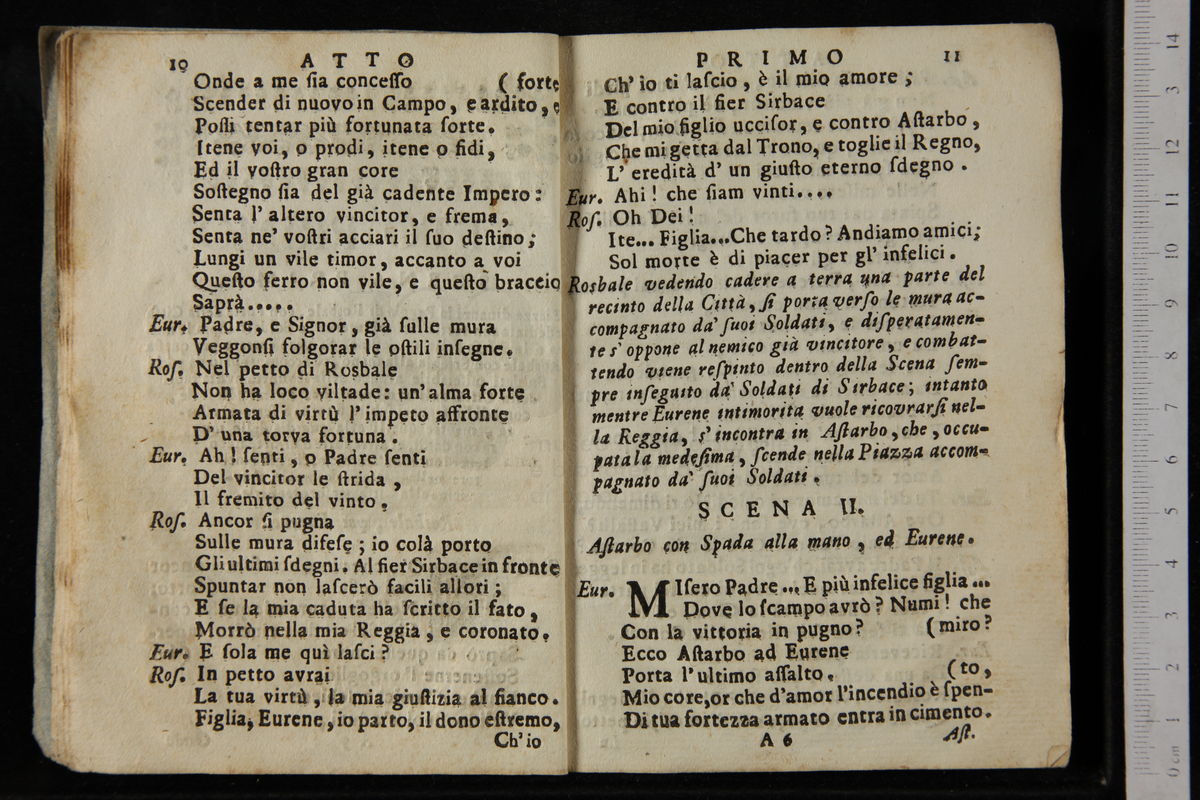 10 ATTO
Onde a me ſia conceſſo (forte
Scender di nuovo in Campo, e ardito, e
Poſſi tentar più fortunata ſorte.
Itene voi, o prodi, itene o fidi,
Ed il voſtro gran core
Soſtegno ſia del già cadente Impero:
Senta l' altero vincitor, e frema,
Senta ne' voſtri acciari il ſuo deſtino;
Lungi un vile timor, accanto a voi
Queſto ferro non vile, e queſto braccio
Saprà.....
Eur. Padre, e Signor, già ſulle mura
Veggonſi folgorar le oſtili inſegne.
Roſ. Nel petto di Rosbale
Non ha loco viltade: un' alma forte
Armata di virtù l' impeto affronte
D' una torva fortuna.
Eur. Ah! ſenti, o Padre ſenti
Del vincitor le ſtrida,
Il fremito del vinto.
Roſ. Ancor ſi pugna
Sulle mura difeſe; io colà porto
Gli ultimi ſdegni. Al fier Sirbace in fronte
Spuntar non laſcerò facili allori;
E ſe la mia caduta ha ſcritto il fato,
Morrò nella mia Reggia, e coronato.
Eur. E ſola me quì laſci?
Roſ. In petto avrai
La tua virtù, la mia giuſtizia al fianco.
Figlia, Eurene, io parto, il dono eſtremo,
Ch' io
PRIMO 11
Ch' io ti laſcio, è il mio amore;
E contro il fier Sirbace
Del mio figlio ucciſor, e contro Aſtarbo,
Che mi getta dal Trono, e toglie il Regno,
L' eredità d' un giuſto eterno ſdegno.
Eur. Ahi! che ſiam vinti....
Roſ. Oh Dei!
Ite... Figlia...Che tardo? Andiamo amici;
Sol morte è di piacer per gl' infelici.
Rosbale vedendo cadere a terra una parte del
recinto della Città, ſi porta verſo le mura ac-
compagnato da' ſuoi Soldati, e diſperatamen-
te s' oppone al nemico già vincitore, e combat-
tendo viene reſpinto dentro della Scena ſem-
pre inſeguito da' Soldati di Sirbace; intanto
mentre Eurene intimorita vuole ricovrarſi nel-
la Reggia, s' incontra in Aſtarbo, che, occu-
pata la medeſima, ſcende nella Piazza accom-
pagnato da' ſuoi Soldati.
SCENA II.
Aſtarbo con Spada alla mano, ed Eurene.
Eur. MIſero Padre... E più infelice figlia...
Dove lo ſcampo avrò? Numi! che
Con la vittoria in pugno? (miro?
Ecco Aſtarbo ad Eurene
Porta l' ultimo aſſalto. (to,
Mio core, or che d' amor l' incendio è ſpen-
Di tua fortezza armato entra in cimento.
A 6 Aſt.